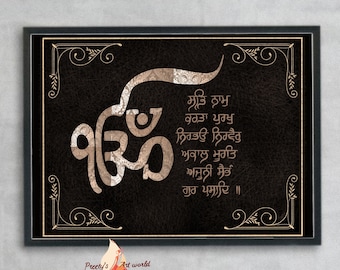 ੴ
ਸਤਿ ਨਾਮ
ਕਰਤਾ ਪੁਰਖੁ
ਨਿਰਭਉ ਨਿਰਵੈਰੁ
ਅਕਾਲ ਮੂਰਤਿ
ਅਜੂਨੀ ਸੈਭੰ
ਗੁਰ ਪ੍ਰਸਾਦਿ ॥
Preety's Art world